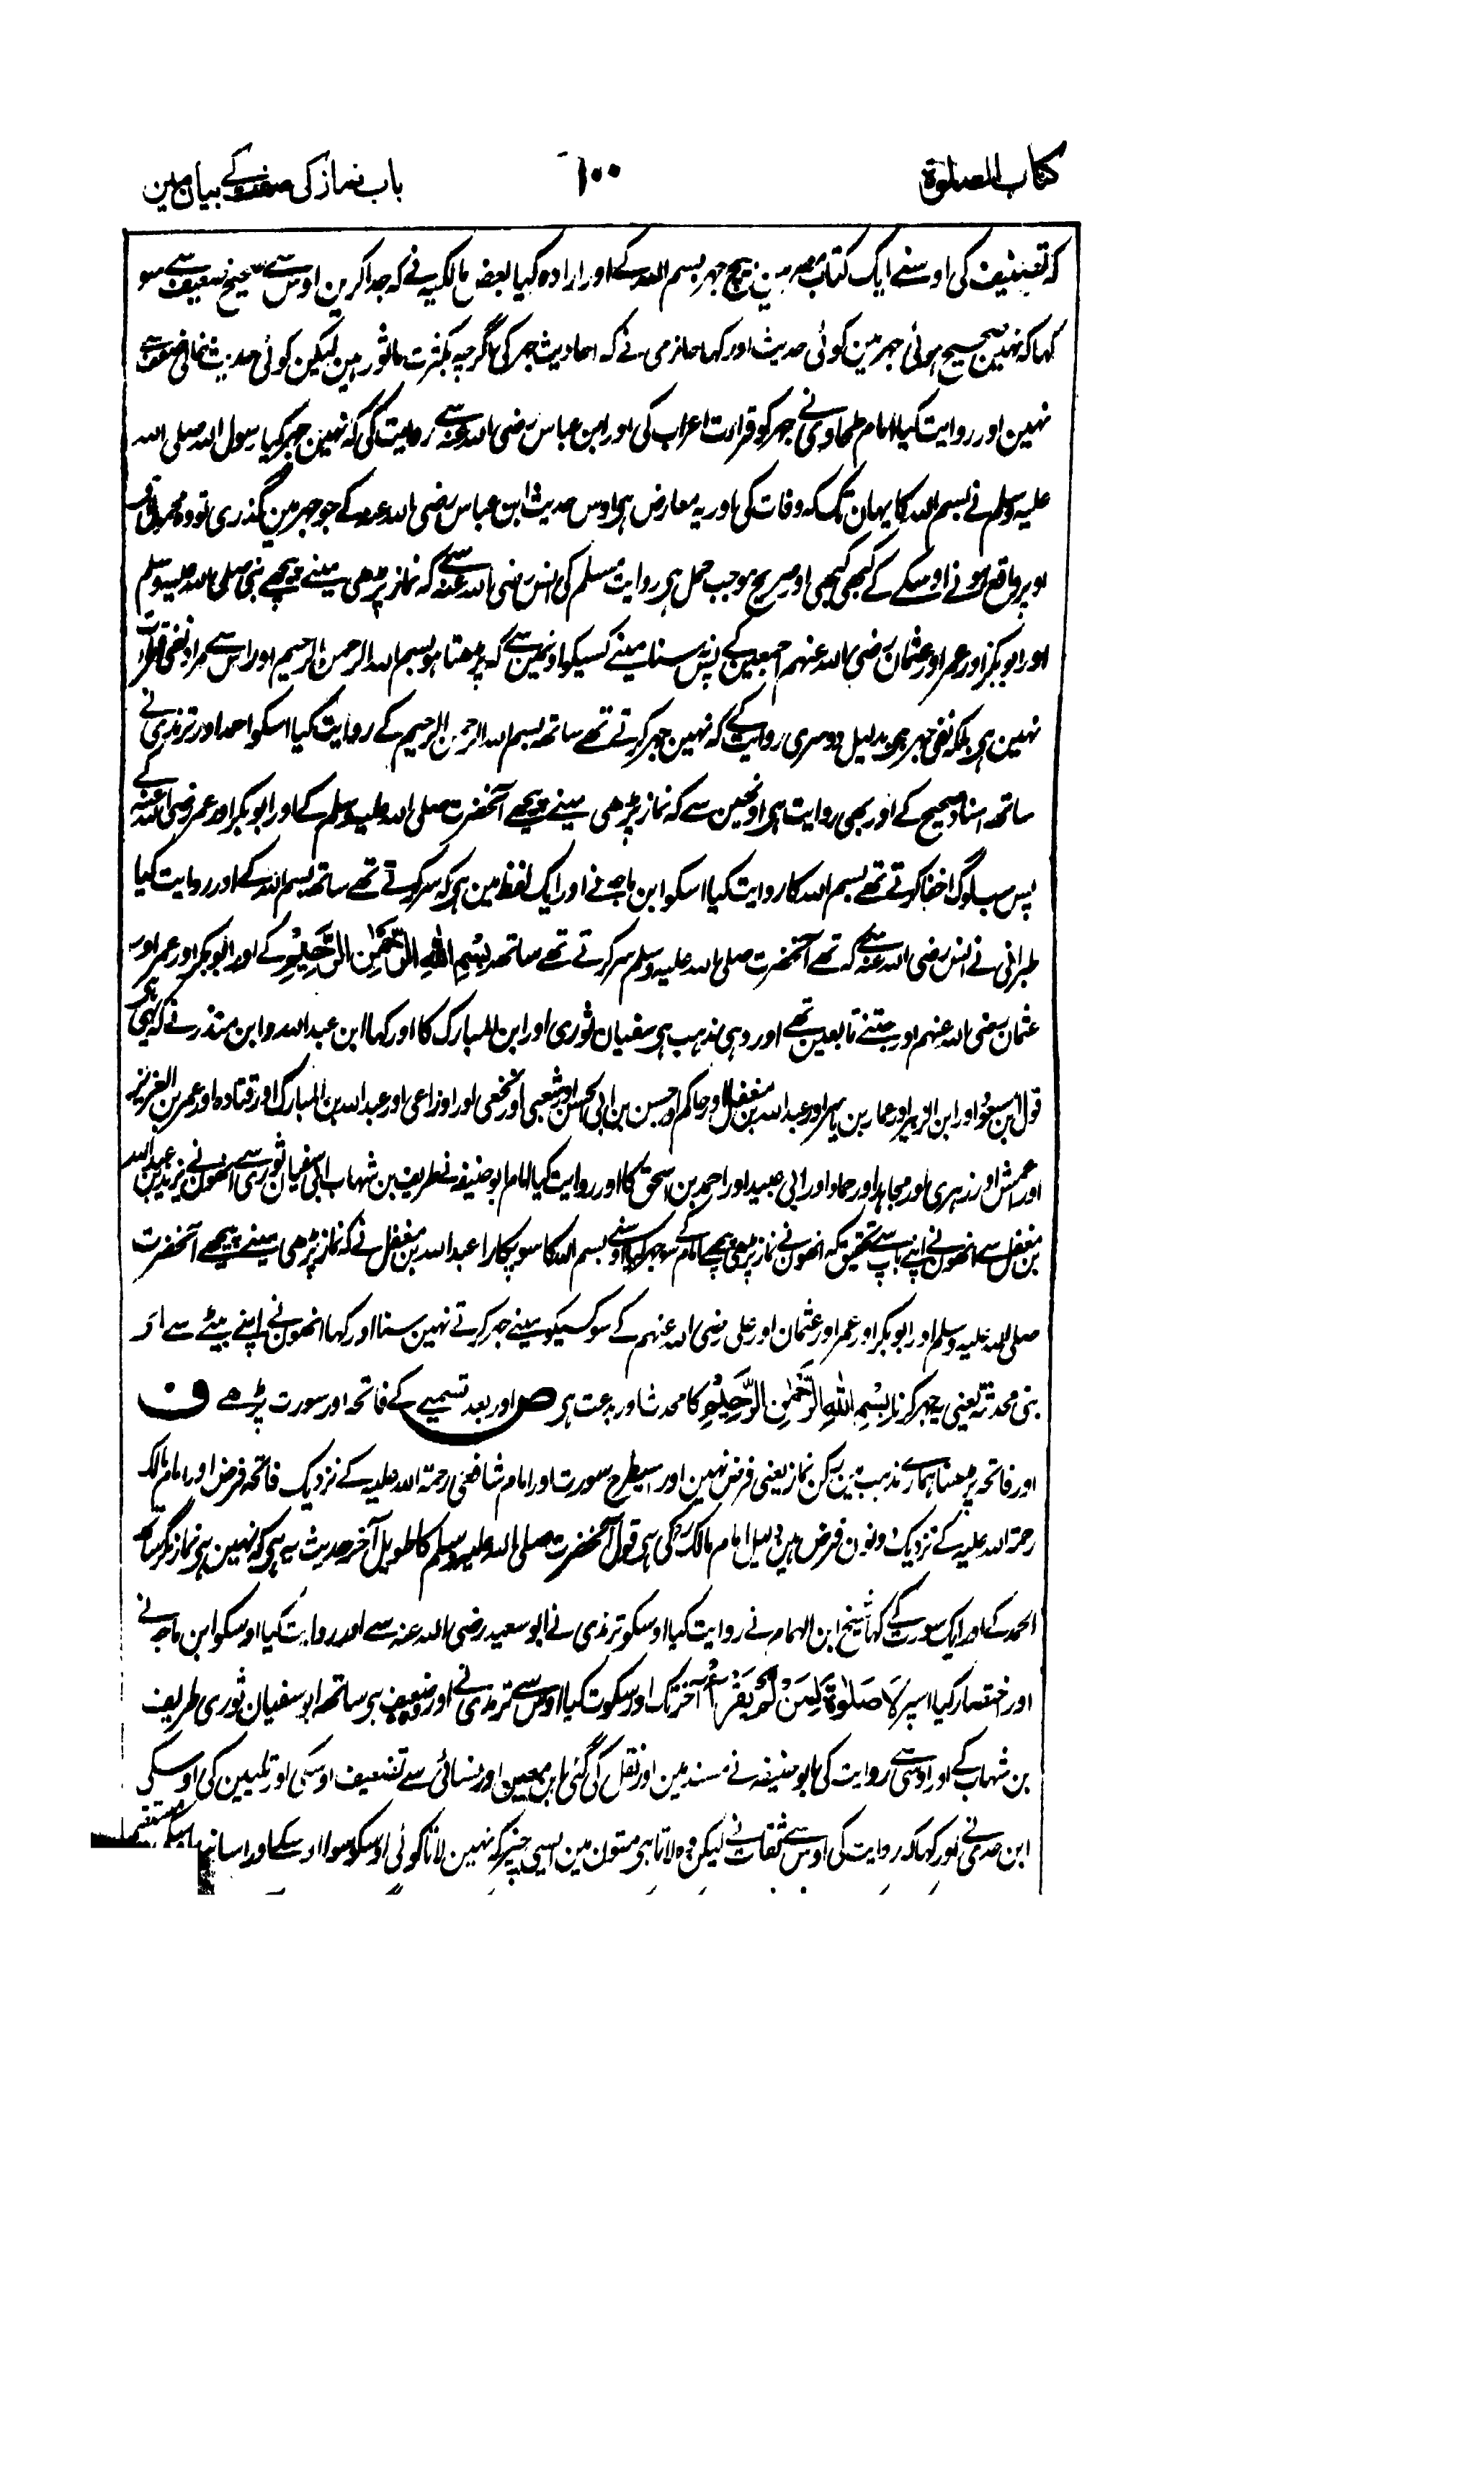 کتاب الصلوۃ ۱۰۰ باب نماز کی صفت کے بیان مین
کہ تصنیف کی اوسنے ایک کتاب مصر مین بیچ جہر بسم اللہ کے اور ارادہ کیا بعض مالکیہ نے کہ جدا کرین اوس سے صحیح ضعیف سے سو
کہا کہ نہین صحیح ہوئی جہر مین کوئی حدیث اور کہا حازمی نے کہ احادیث جہر کی اگرچہ بکثرت ماثور ہین لیکن کوئی حدیث خالی ضعف سے
نہین اور روایت کیا امام طحاوی نے جہر کو قرارت اعراب کی اور ابن عباس رضی اللہ عنہ سے روایت کی کہ نہین جہر کیا رسول اللہ صلی اللہ
علیہ وسلم نے بسم اللہ کا یہان تک کہ وفات کی اور یہ معارض ہی اوس حدیث ابن عباس رضی اللہ عنہ کے جو جہر مین گذری تو وہ محمول ہی
اوپر واقع ہونے اوسکے کے کبھی کبھی اور صریح موجب حمل ہی روایت مسلم کی انس رضی اللہ عنہ سے کہ نماز پڑھی مینے پیچھے نبی صلی اللہ علیہ وسلم
اور ابو بکر اور عمر اور عثمان رضی اللہ عنہم اجمعین کے پس نہ سنا مینے کسیکو اونمین سے کہ پڑھتا ہو بسم اللہ الرحمن الرحیم اور اس سے مراد نفی قرارت
نہین ہی بلکہ نفی جہر ہی بدلیل دوسری روایت کے کہ نہین جہر کرتے تھے ساتھ بسم اللہ الرحمن الرحیم کے روایت کیا اسکو احمد اور ترمذی نے
ساتھ اسناد صحیح کے اور بھی روایت ہی اونھین سے کہ نماز پڑھی مینے پیچھے آنحضرت صلی اللہ علیہ وسلم کے اور ابو بکر اور عمر رضی اللہ عنہ کے
پس سب لوگ اخفا کرتے تھے بسم اللہ کا روایت کیا اسکو ابن ماجہ نے اور ایک لفظ مین ہی کہ سر کرتے تھے ساتھ بسم اللہ کے اور روایت کیا
طبرانی نے انس رضی اللہ عنہ سے کہ تھے آنحضرت صلی اللہ علیہ وسلم سر کرتے تھے ساتھ بِسْمِ اللهِ الرَّحْمٰنِ الرَّحِيْمِ کے اور ابو بکر اور عمر اور
عثمان رضی اللہ عنہم اور جتنے تابعین تھے اور وہی مذہب ہی سفیان ثوری اور ابن المبارک کا اور کہا ابن عبد اللہ و ابن منذر نے کہ یہی ہی
قول ابن مسعود اور ابن الزبیر اور عمار بن یاسر اور عبد اللہ بن مغفل اور حاکم اور حسن بن ابی الحسن اور شعبی اور نخعی اور اوزاعی اور عبد اللہ بن المبارک اور قتادہ اور عمر بن العزیز
اور اعمش اور زہری اور مجاہد اور حماد اور ابی عبید اور احمد بن اسحق کا اور روایت کیا امام ابو حنیفہ نے طریف بن شہاب ابی سفیان ثوری سے انھون نے یزید بن عبد اللہ
بن مغفل سے انھون نے اپنے باپ سے تحقیق کہ انھون نے نماز پڑھی پیچھے امام کے سو جہر کیا اوسنے بسم اللہ کا سو پکارا عبد اللہ بن مغفل نے کہ نماز پڑھی مینے پیچھے آنحضرت
صلی اللہ علیہ وسلم اور ابو بکر اور عمر اور عثمان اور علی رضی اللہ عنہم کے سو کسیکو مینے جہر کرتے نہین سنا اور کہا انھون نے اپنے بیٹے سے اَیْ
بنی محدثۃ یعنی یہ جہر کرنا بِسْمِ اللهِ الرَّحْمٰنِ الرَّحِيْمِ کا محدث اور بدعت ہی ص اور بعد تسمیے کے فاتحہ اور سورت پڑھے ف
اور فاتحہ پڑھنا ہمارے مذہب مین رکن نماز یعنی فرض نہین اور اسیطرح سورت اور امام شافعی رحمۃ اللہ علیہ کے نزدیک فاتحہ فرض اور امام مالک
رحمۃ اللہ علیہ کے نزدیک دونون فرض ہین دلیل امام مالک رح کی ہی قول آنحضرت صلی اللہ علیہ وسلم کا طویل آخر حدیث سے ہی کہ نہین ہی نماز مگر ساتھ
الحمد کے اور ایک سورت کے کہا شیخ ابن الہمام نے روایت کیا اوسکو ترمذی نے ابو سعید رضی اللہ عنہ سے اور روایت کیا اوسکو ابن ماجہ نے
اور اختصار کیا اسپر لَا صَلٰوةَ لِمَنْ لَمْ يَقْرَأْ آخر تک اور سکوت کیا اوس سے ترمذی نے اور ضعیف ہی ساتھ ابو سفیان ثوری طریف
بن شہاب کے اور اوسی سے روایت کی ابو حنیفہ نے مسند مین اور نقل کی گئی ابن معین اور نسائی سے تضعیف اوسکی اور تلیین کی اوسکی
ابن عدی نے اور کہا کہ روایت کی اوس سے ثقات نے لیکن وہ لاتا ہی متون مین ایسی چیز کہ نہین لاتا کوئی اوسکو سوا اوسکے اور اسانید